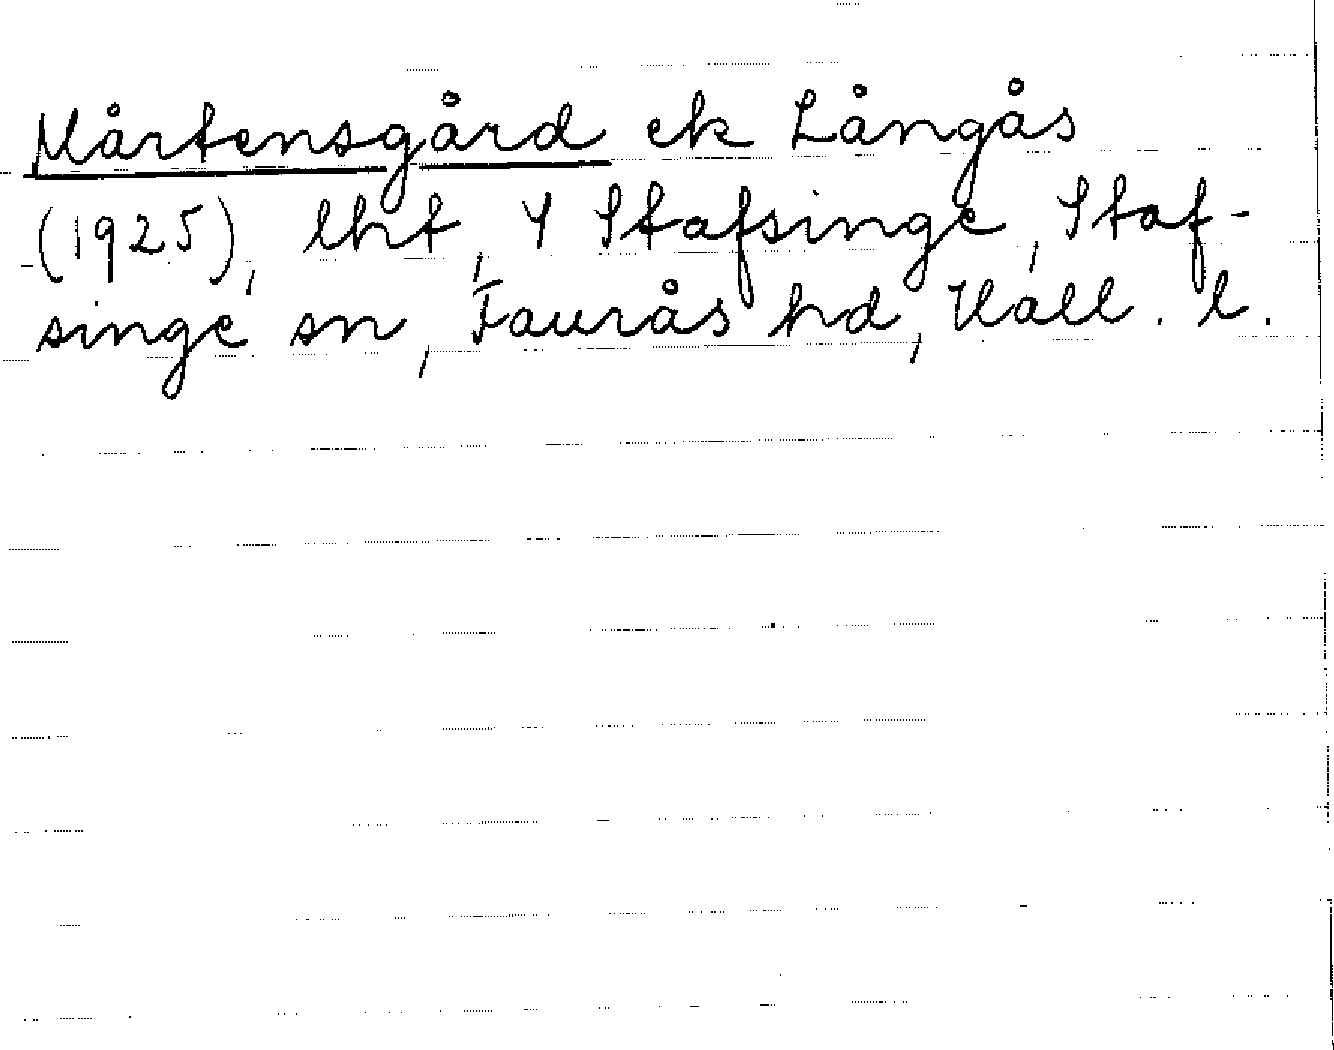 Mårtensgård ek Långås
(1925), lht, Y Stafsinge, Staf-
singe sn, Faurås hd, Hall. l.